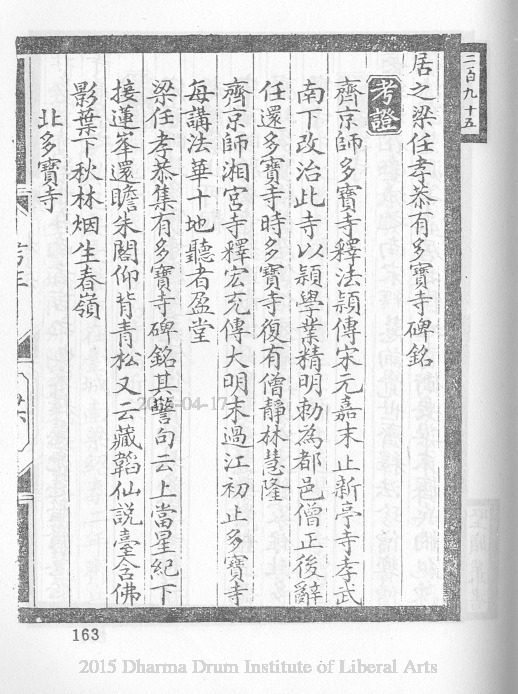 二百九十五
居之梁任孝恭有多寶寺碑銘
考證
齊京師多寶寺釋法穎傳宋元嘉末止新亭寺孝武
南下改治此寺以穎學業精明勅為都邑僧正後辭
任還多寶寺時多寶寺復有僧靜林慧隆
齊京師湘宮寺釋宏充傳大明末過江初止多寶寺
每講法華十地聽者盈堂
梁任孝恭集有多寶寺碑銘其警句云上當星紀下
接蓮峯還瞻朱閣仰背青松又云藏韜仙説臺含佛
影葉下秋林烟生春嶺
北多寶寺
163
2015 Dharma Drum Institute of Liberal Arts